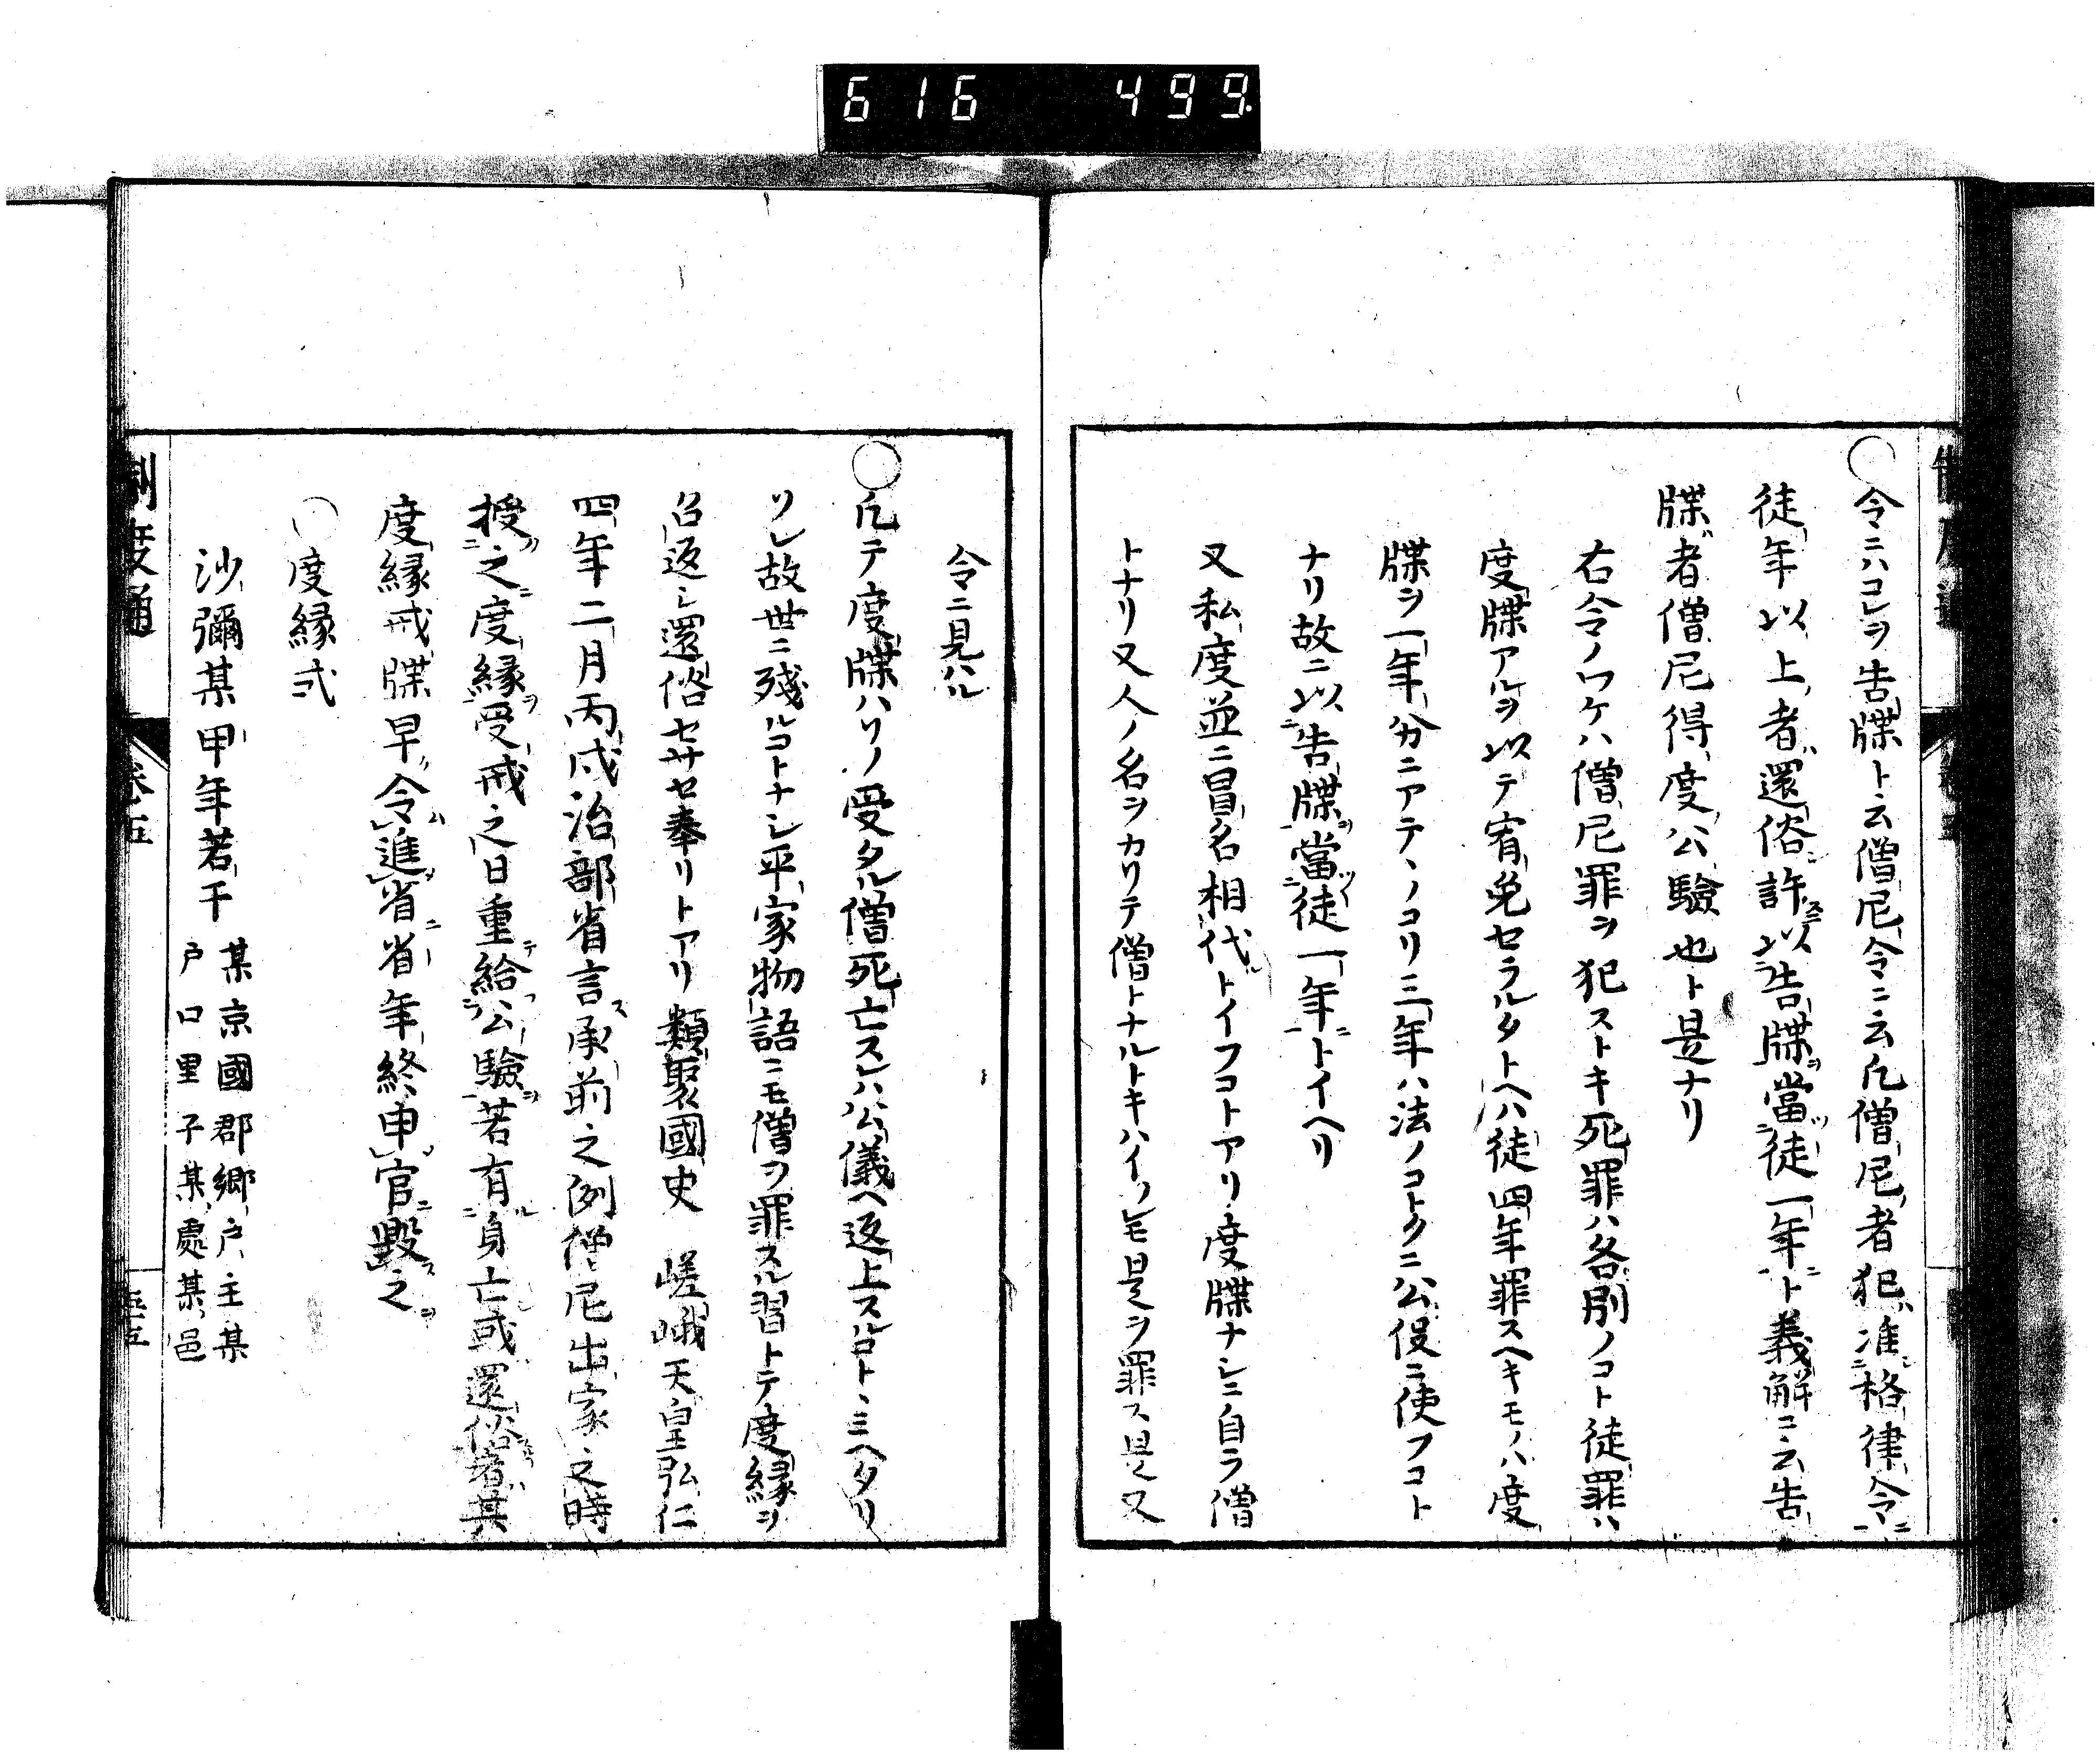 616 499
〇令ニハコレヲ告牒ト云僧尼令ニ云凡僧尼者犯准格律令
徒年以上者還俗許以告牒當徒一年ト義解ニ云告
牒者僧尼得度公驗也ト是ナリ
右令ノワケハ僧尼罪ヲ犯ストキ死罪ハ各別ノコト徒罪ハ
度牒アルヲ以テ宥免セラルタトヘハ徒四年罪スヘキモノハ度
牒ヲ一年分ニアテ、ノコリ三年ハ法ノコトクニ公役ニ使フコト
ナリ故ニ以告牒當徒一年トイヘリ
又私度並ニ冒名相代トイフコトアリ度牒ナシニ自ラ僧
トナリ又人ノ名ヲカリテ僧トナルトキハイツレモ是ヲ罪ス是又
令ニ見ハル
〇凡テ度牒ハソノ受タル僧死亡スレハ公儀ヘ返上スルコト、ミヘタリ
ソレ故世ニ殘ルコトナシ平家物語ニモ僧ヲ罪スル習トテ度縁ヲ
召返シ還俗セサセ奉リトアリ類聚國史　嵯峨天皇弘仁
四年二月丙戌治部省言承前之例僧尼出家之時
授之度縁受戒之日重給公驗若有身亡或還俗者其
度縁戒牒早令進省省年終申官毀之
〇度縁式
沙彌某甲年若干
某京國郡郷戸主某
戸口里子某處某邑
制度通 卷五